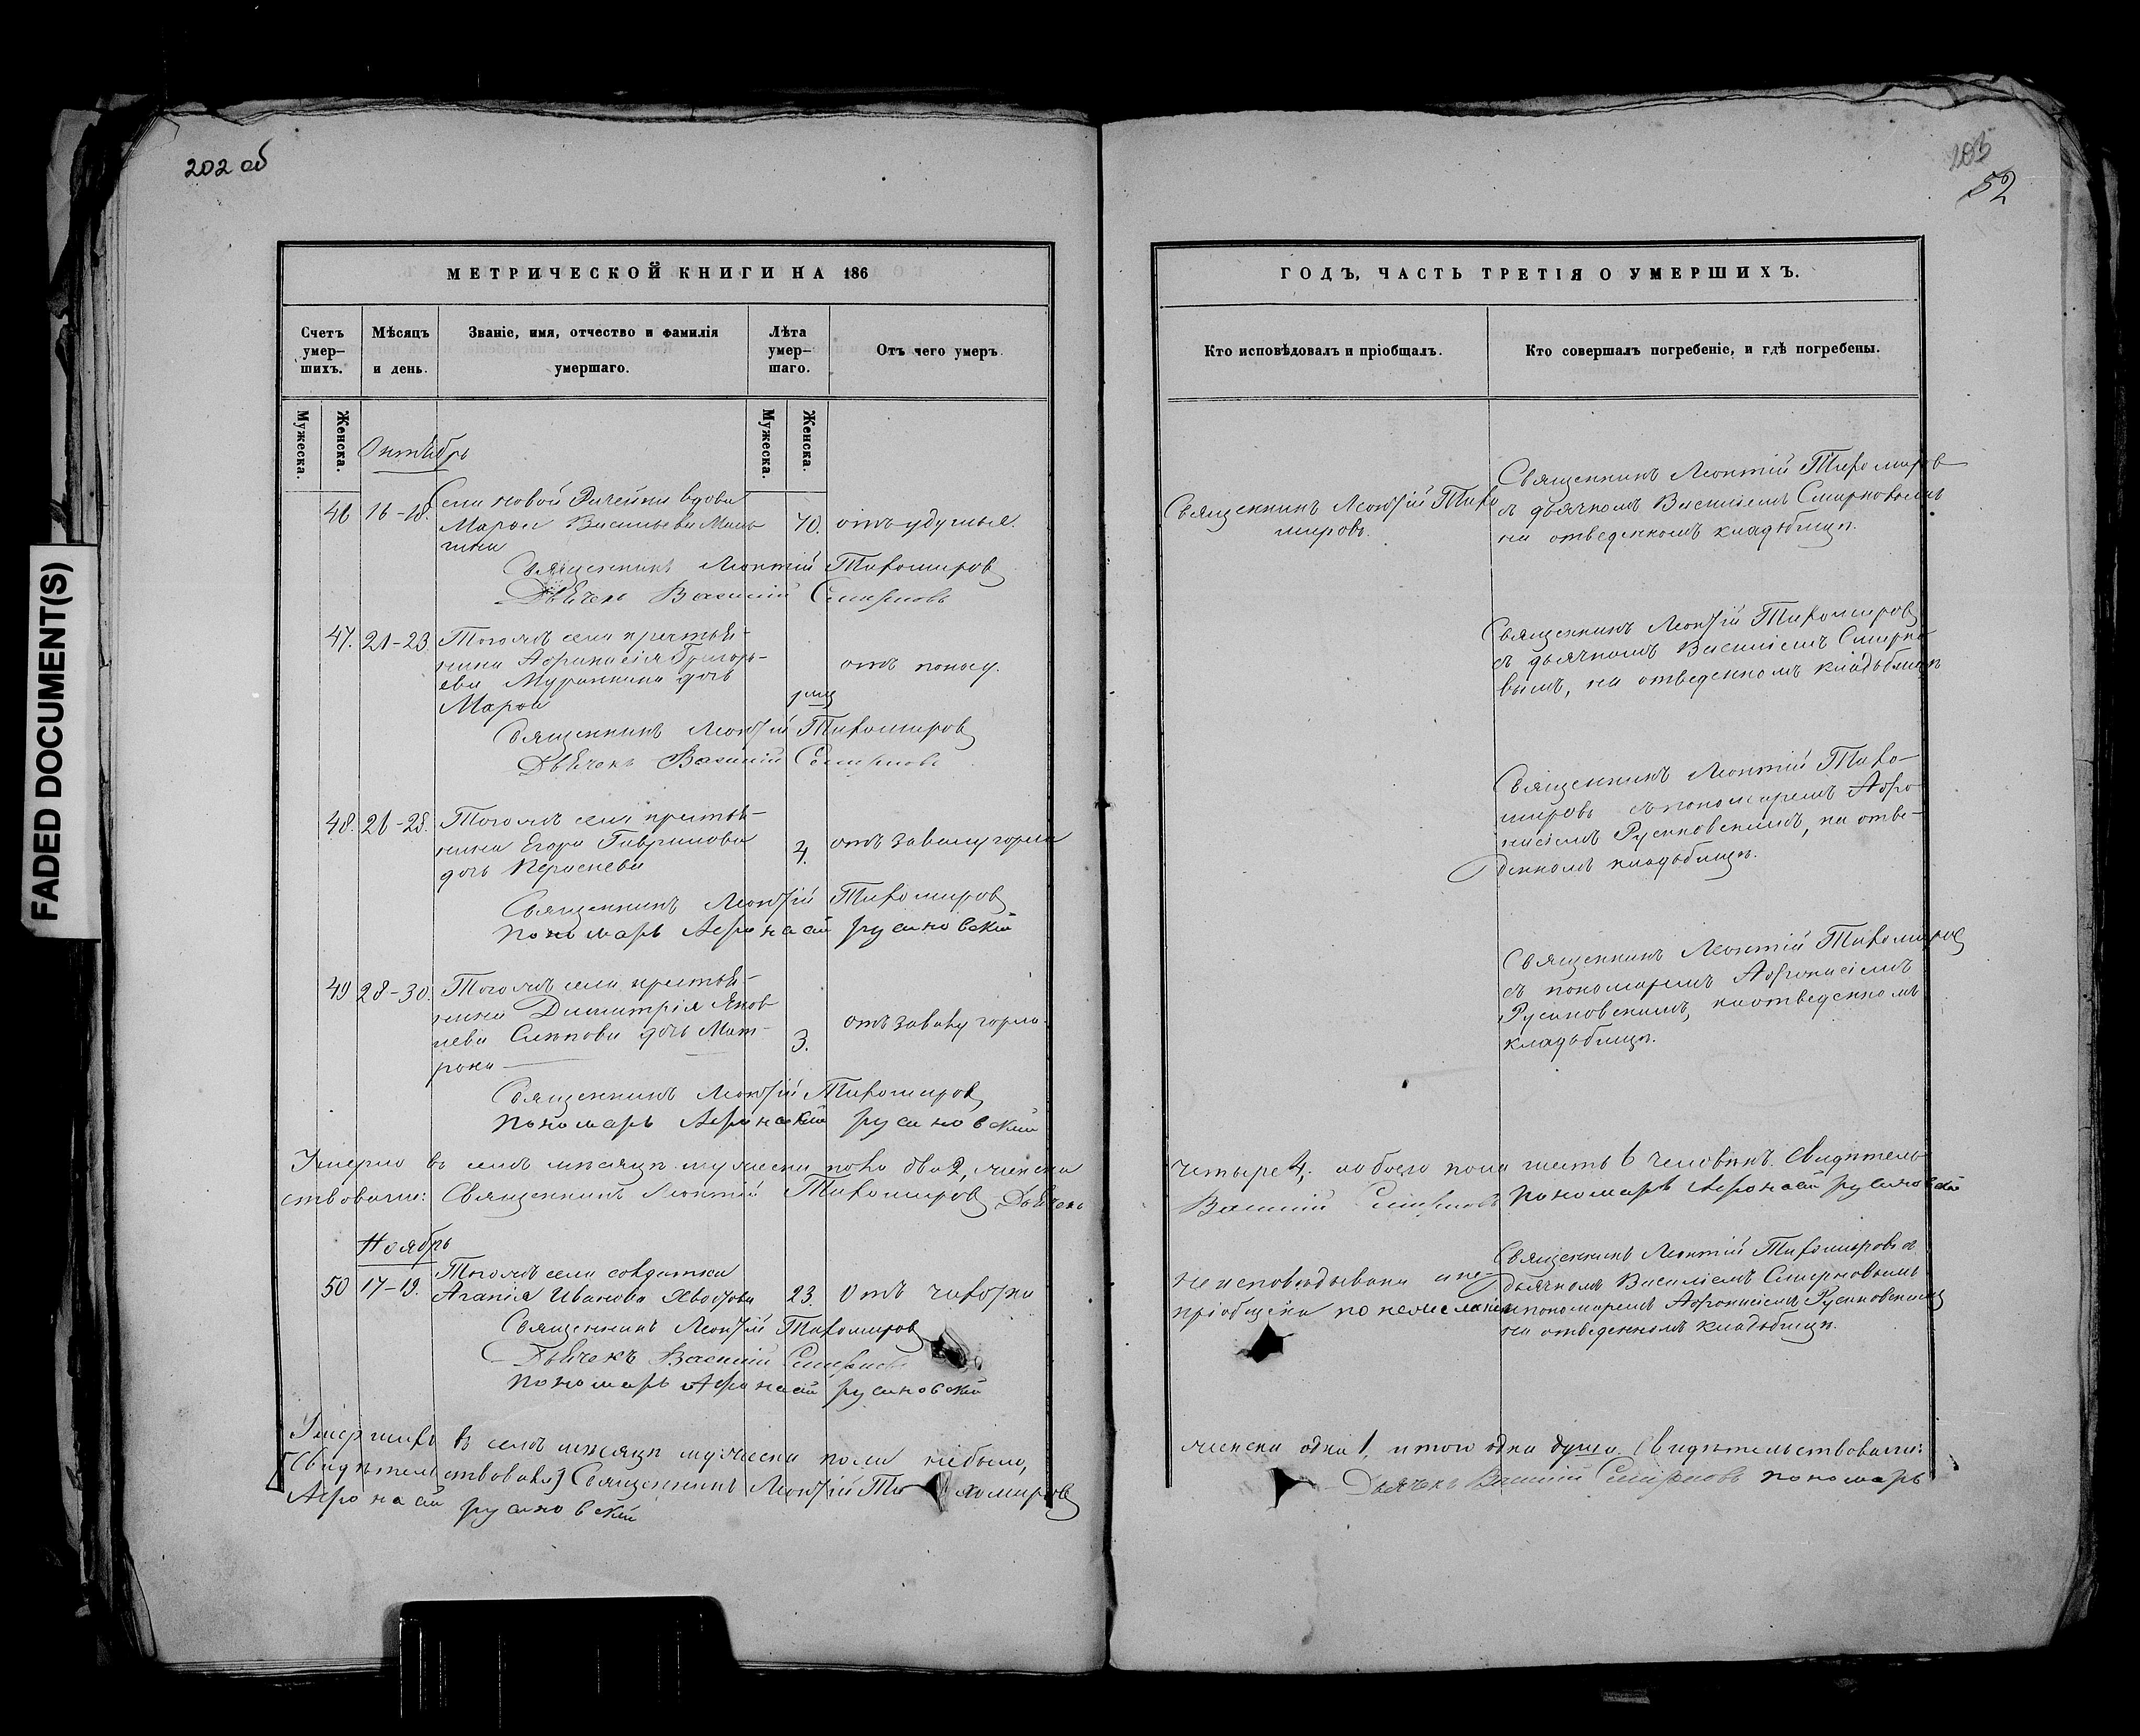 202 об
203
52
FADED DOCUMENT(S)
МЕТРИЧЕСКОЙ КНИГИ НА 186
Счетъ умер-шихъ.
Мѣсяцъ и день.
Званіе, имя, отчество и фамилія умершаго.
Лѣта умер-шаго.
Отъ чего умеръ.
Мужеска.
Женска.
Мужеска.
Женска.
Октябрь
46
16-18.
села новой вдова
Марѳа Васильева
70.
отъ удушья.
Священникъ Леонтій Тихомировъ
Дьячекъ Василій Смирновъ
47.
21-23.
Тогожъ села крестья-
нина Аѳанасія Григорь-
ева дочь
Марѳа
отъ поносу.
Священникъ Леонтій Тихомировъ
Дьячекъ Василій Смирновъ
48.
26-28.
Тогожъ села крестья-
нина Егора Гаврилова
дочь
4.
отъ завалу горла
Священникъ Леонтій Тихомировъ
пономарь Афанасій русановскій
49
28-30.
Тогожъ села крестья-
нина Димитрія Яков
лева дочь Мат-
рона
3.
отъ завалу горла.
Священникъ Леонтій Тихомировъ
пономарь Афанасій русановскій
Умерло въ семъ мѣсяцѣ мужеска пола два 2, женска
ствовали: Священникъ Леонтій Тихомировъ Дьячекъ
Ноябрь
50
17-19.
Тогожъ села солдатка
Агапія Иванова
23.
Отъ чахотки
Священникъ Леонтій Тихомировъ
Дьячекъ Василій Смирновъ
пономарь Афанасій русановскій
Умершихъ въ семъ мѣсяцѣ мужеска пола небыло,
Священникъ Леонтій Тихомировъ
Афанасій русановскій
ГОДЪ, ЧАСТЬ ТРЕТІЯ О УМЕРШИХЪ.
Кто исповѣдовалъ и пріобщалъ.
Кто совершалъ погребеніе, и гдѣ погребены.
Священникъ Леонтій Тихо
мировъ.
Священникъ Леонтій Тихомировъ
съ дьячкомъ Василіемъ Смирновымъ
на отведенномъ кладбищѣ.
Священникъ Леонтій Тихомировъ
съ дьячкомъ Василіемъ Смирно
вымъ, на отведенномъ кладьбищѣ
Священникъ Леонтій Тихо-
мировъ съ пономаремъ Аѳа
насіемъ Русановскимъ, на отве-
денномъ кладьбищѣ.
Священникъ Леонтій Тихомировъ
съ пономаремъ Аѳанасіемъ
Русановскимъ, на отведенномъ
кладьбищѣ.
четыре 4; обоего пола шесть 6 человѣкъ. Свидѣтель
Василій Смирновъ пономарь Афанасій русановскій
Священникъ Леонтій Тихомировъ съ
дьячкомъ Василіемъ Смирновымъ
и пономаремъ Аѳанасіемъ Русановскимъ
на отведенномъ кладбищѣ.
не исповѣдывана и не
пріобщена
женска одна 1, итого одна душа. Свидѣтельствовали:
Дьячекъ Василій Смирновъ пономарь